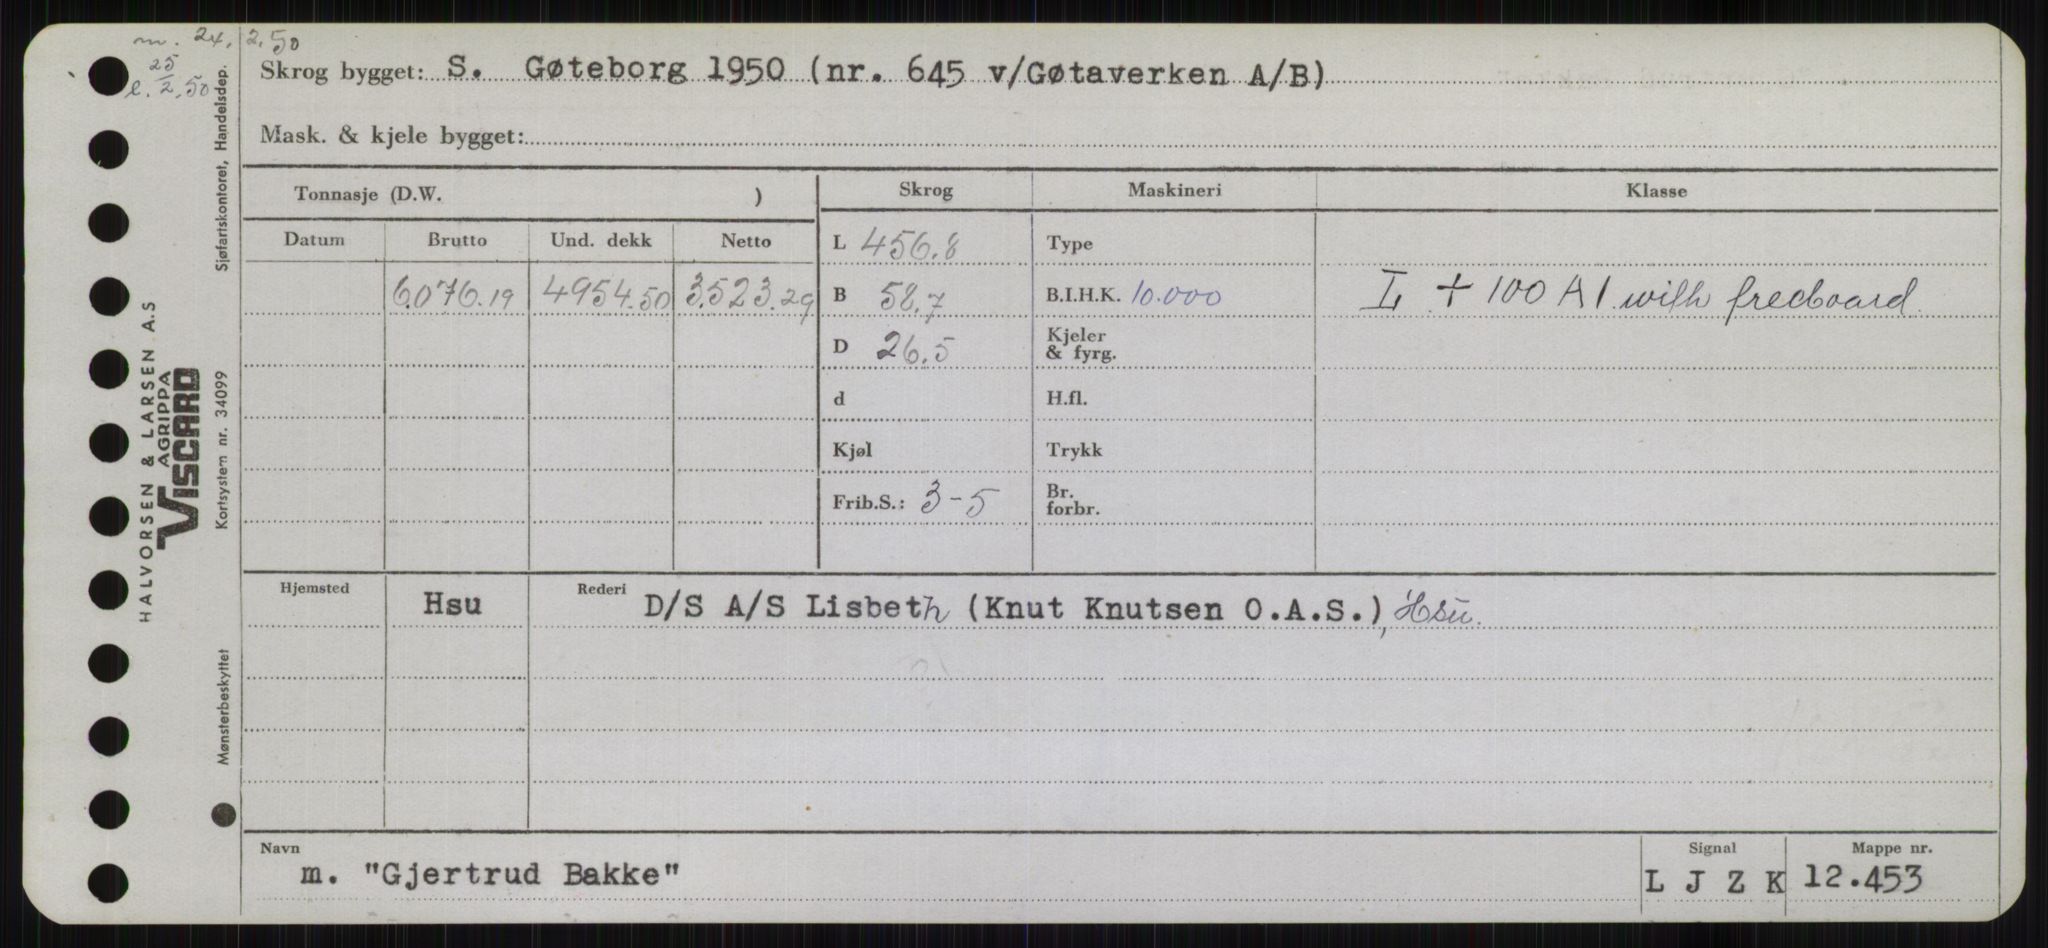 m. 24, 2, 50
25
l. 2, 50
Skrog bygget: S. Gøteborg 1950 (nr. 645 v/Gøtaverken A/B)
Mask. & kjele bygget:
Tonnasje (D.W. )
Skrog Maskineri Klasse
Datum Brutto Und. dekk Netto
L 456.8 Type
6.076.19 4954.50 3.523.29 B 58.7 B.I.H.K. 10.000 L + 100 A 1. with freeboard
D 26.5 Kjeler
& fyrg.
d H.fl.
Kjøl Trykk
Frib.S.: 3-5 Br.
forbr.
Hjemsted Hsu Rederi D/S A/S Lisbeth (Knut Knutsen O.A.S.), Hsu.
Navn Signal Mappe nr.
m. "Gjertrud Bakke" L J Z K 12.453
HALVORSEN & LARSEN A.S
AGRIPPA
VISCARD
Mønsterbeskyttet Kortsystem nr. 34099 Sjøfartskontoret, Handelsdep.